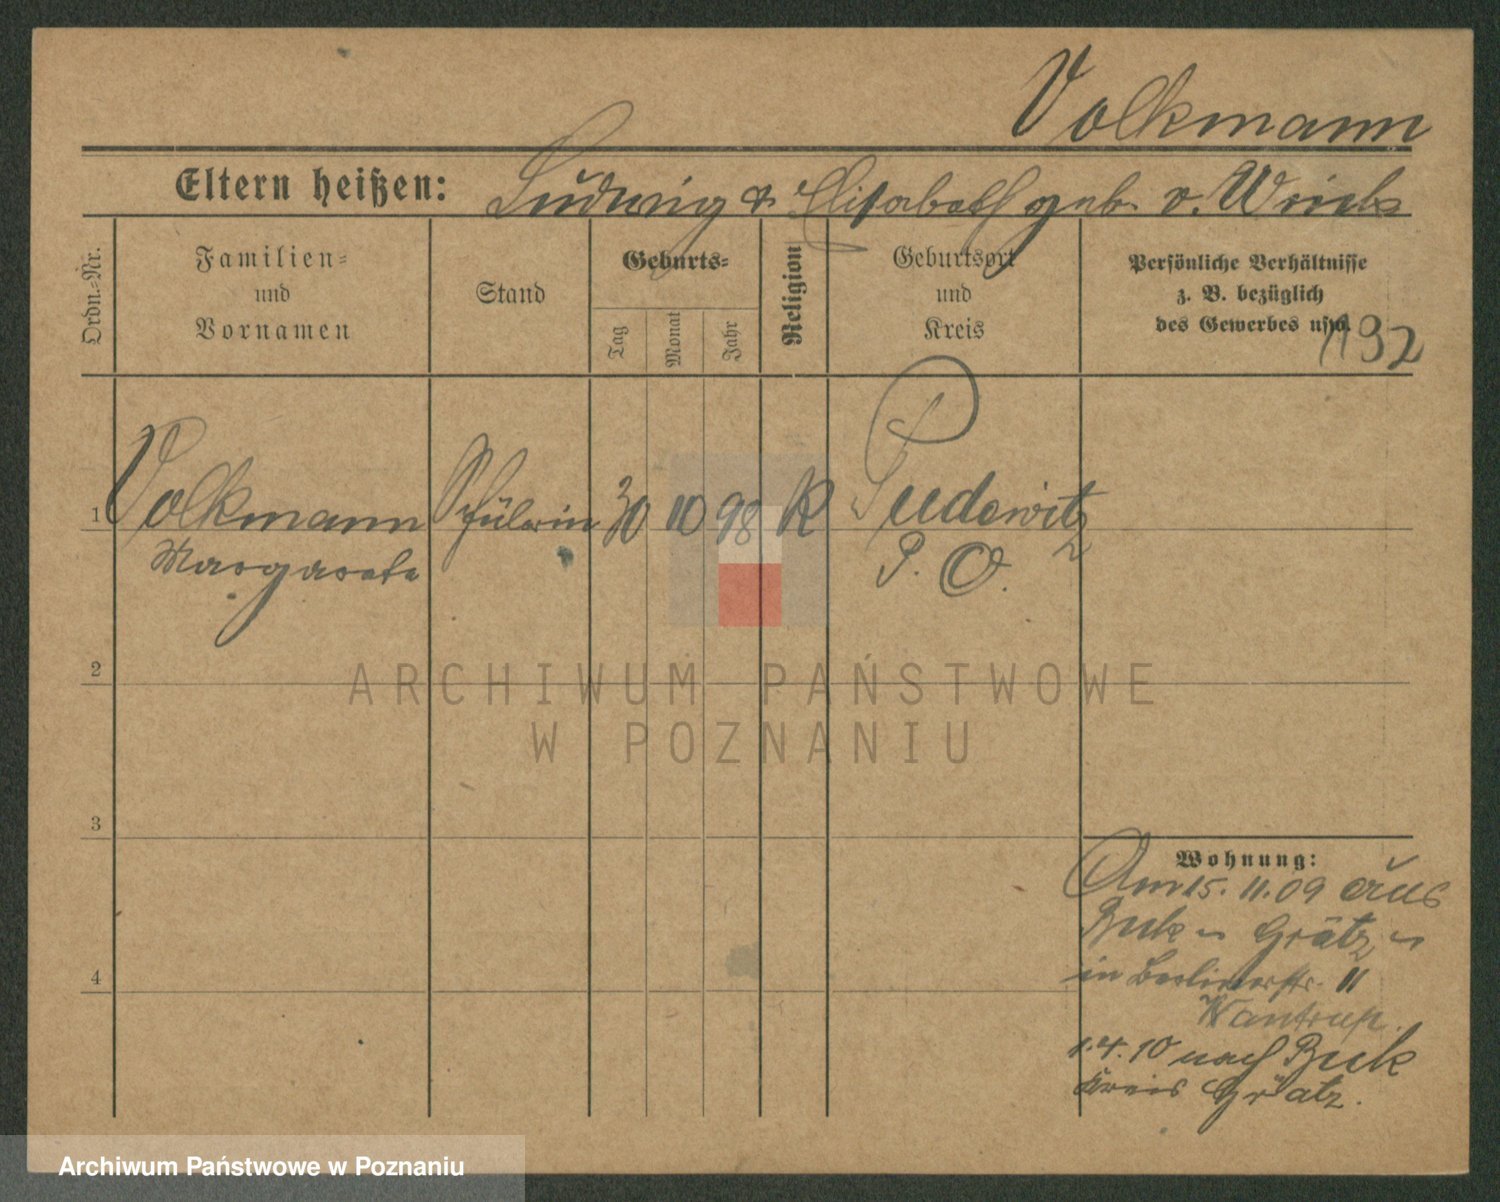 Volkmann
Eltern heißen: Ludwig & Elisabeth geb. v.
Ordn.-Nr.
Familien-
und
Vornamen
Stand
Geburts-
Tag
Monat
Jahr
Religion
Geburtsort
und
Kreis
Persönliche Verhältnisse
z. B. bezüglich
des Gewerbes usw.
192
1 Volkmann Schülerin 30 10 98 K Pudewitz
Margarete P. O.
2
3
4
Wohnung:
Am 15. 11. 09 aus
Buk - Grätz -
in Berlinerstr. 11
Wantrup.
1.4.10 nach Buk
Kreis Grätz.
ARCHIWUM PAŃSTWOWE
W POZNANIU
Archiwum Państwowe w Poznaniu